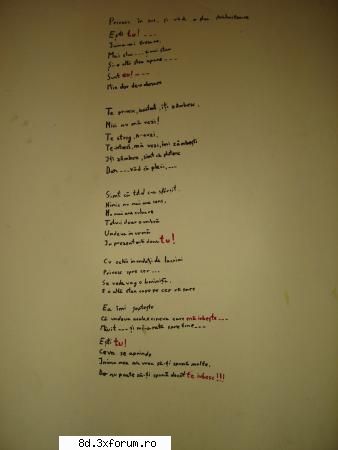 Privesc în sus, și văd o stea strălucitoare
Ești tu! ---
Inima-mi tresare,
Mai stau --- 
Și-o altă stea apare ---
Sunt eu! ---
Mie dor de-o
Te privesc, îți zâmbesc,
Nici nu mă vezi!
Te strig, n-auzi,
Te-ntorci, mă vezi, îmi zâmbești
Îți zâmbesc, simt că plutesc
Dar --- văd că pleci, ---
Simt că totul s-a sfârșit.
Nimic nu mai are sens,
Nu mai are culoare
Totul-i doar o umbră
Undeva în urmă
În prezent ești doar tu!
Cu ochii inundați de lacrimi
Privesc spre cer ---
Se vede vag o luminiță,
E o altă stea care pe cer răsare
Ea îmi șoptește
Că undeva există cineva care mă iubește ---
--- și mi-arată spre tine ---
Ești tu!
Ceva se aprinde
Inima mea ar vrea să-ți spună multe,
Dar nu poate să-ți spună decât te iubesc!!!
8d.3xforum.ro